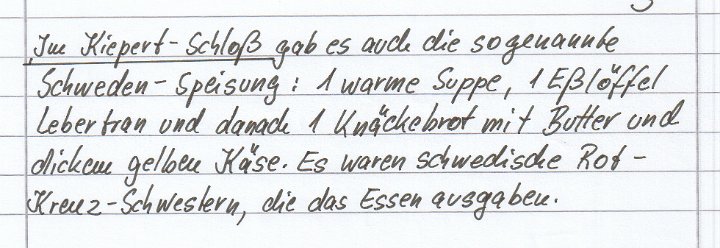 Im Kiepert-Schloß gab es auch die sogenannte
Schweden-Speisung: 1 warme Suppe, 1 Eßlöffel
Lebertran und danach 1 Knäckebrot mit Butter und
dickem gelben Käse. Es waren schwedische Rot-
Kreuz-Schwestern, die das Essen ausgaben.